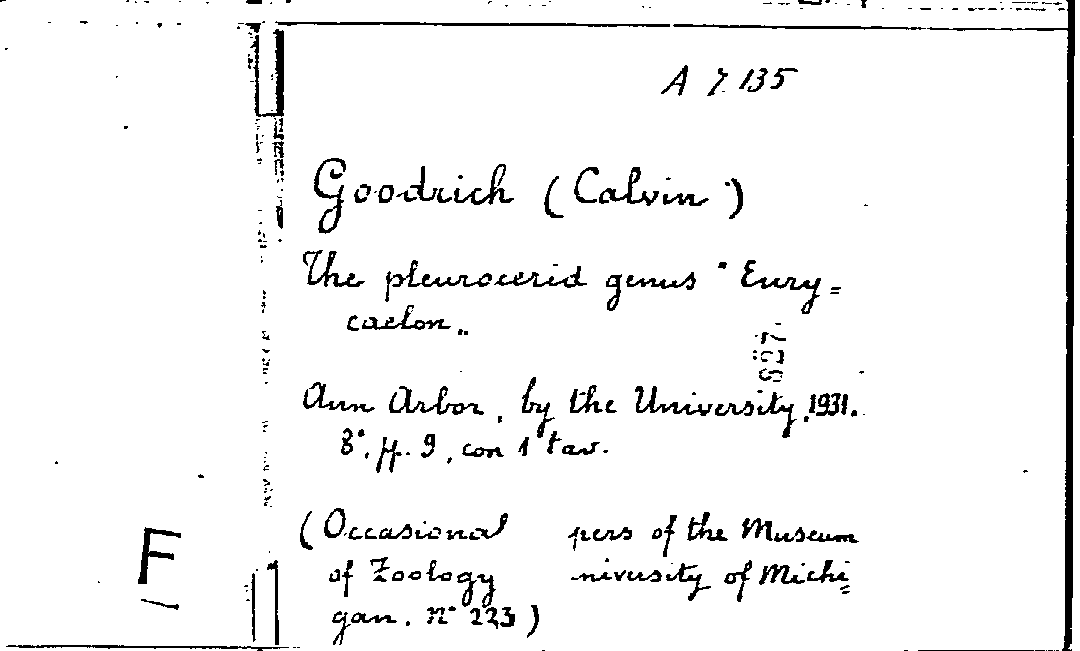 A 7 135
Goodrich (Calvin)
The pleurocerid genus "Eury=
caelon„
827.
Ann Arbor, by the University, 1931.
8°, pp. 9, con 1 tav.
(Occasional pers of the Museum
of Zoology niversity of Michi=
gan. N° 223)
F